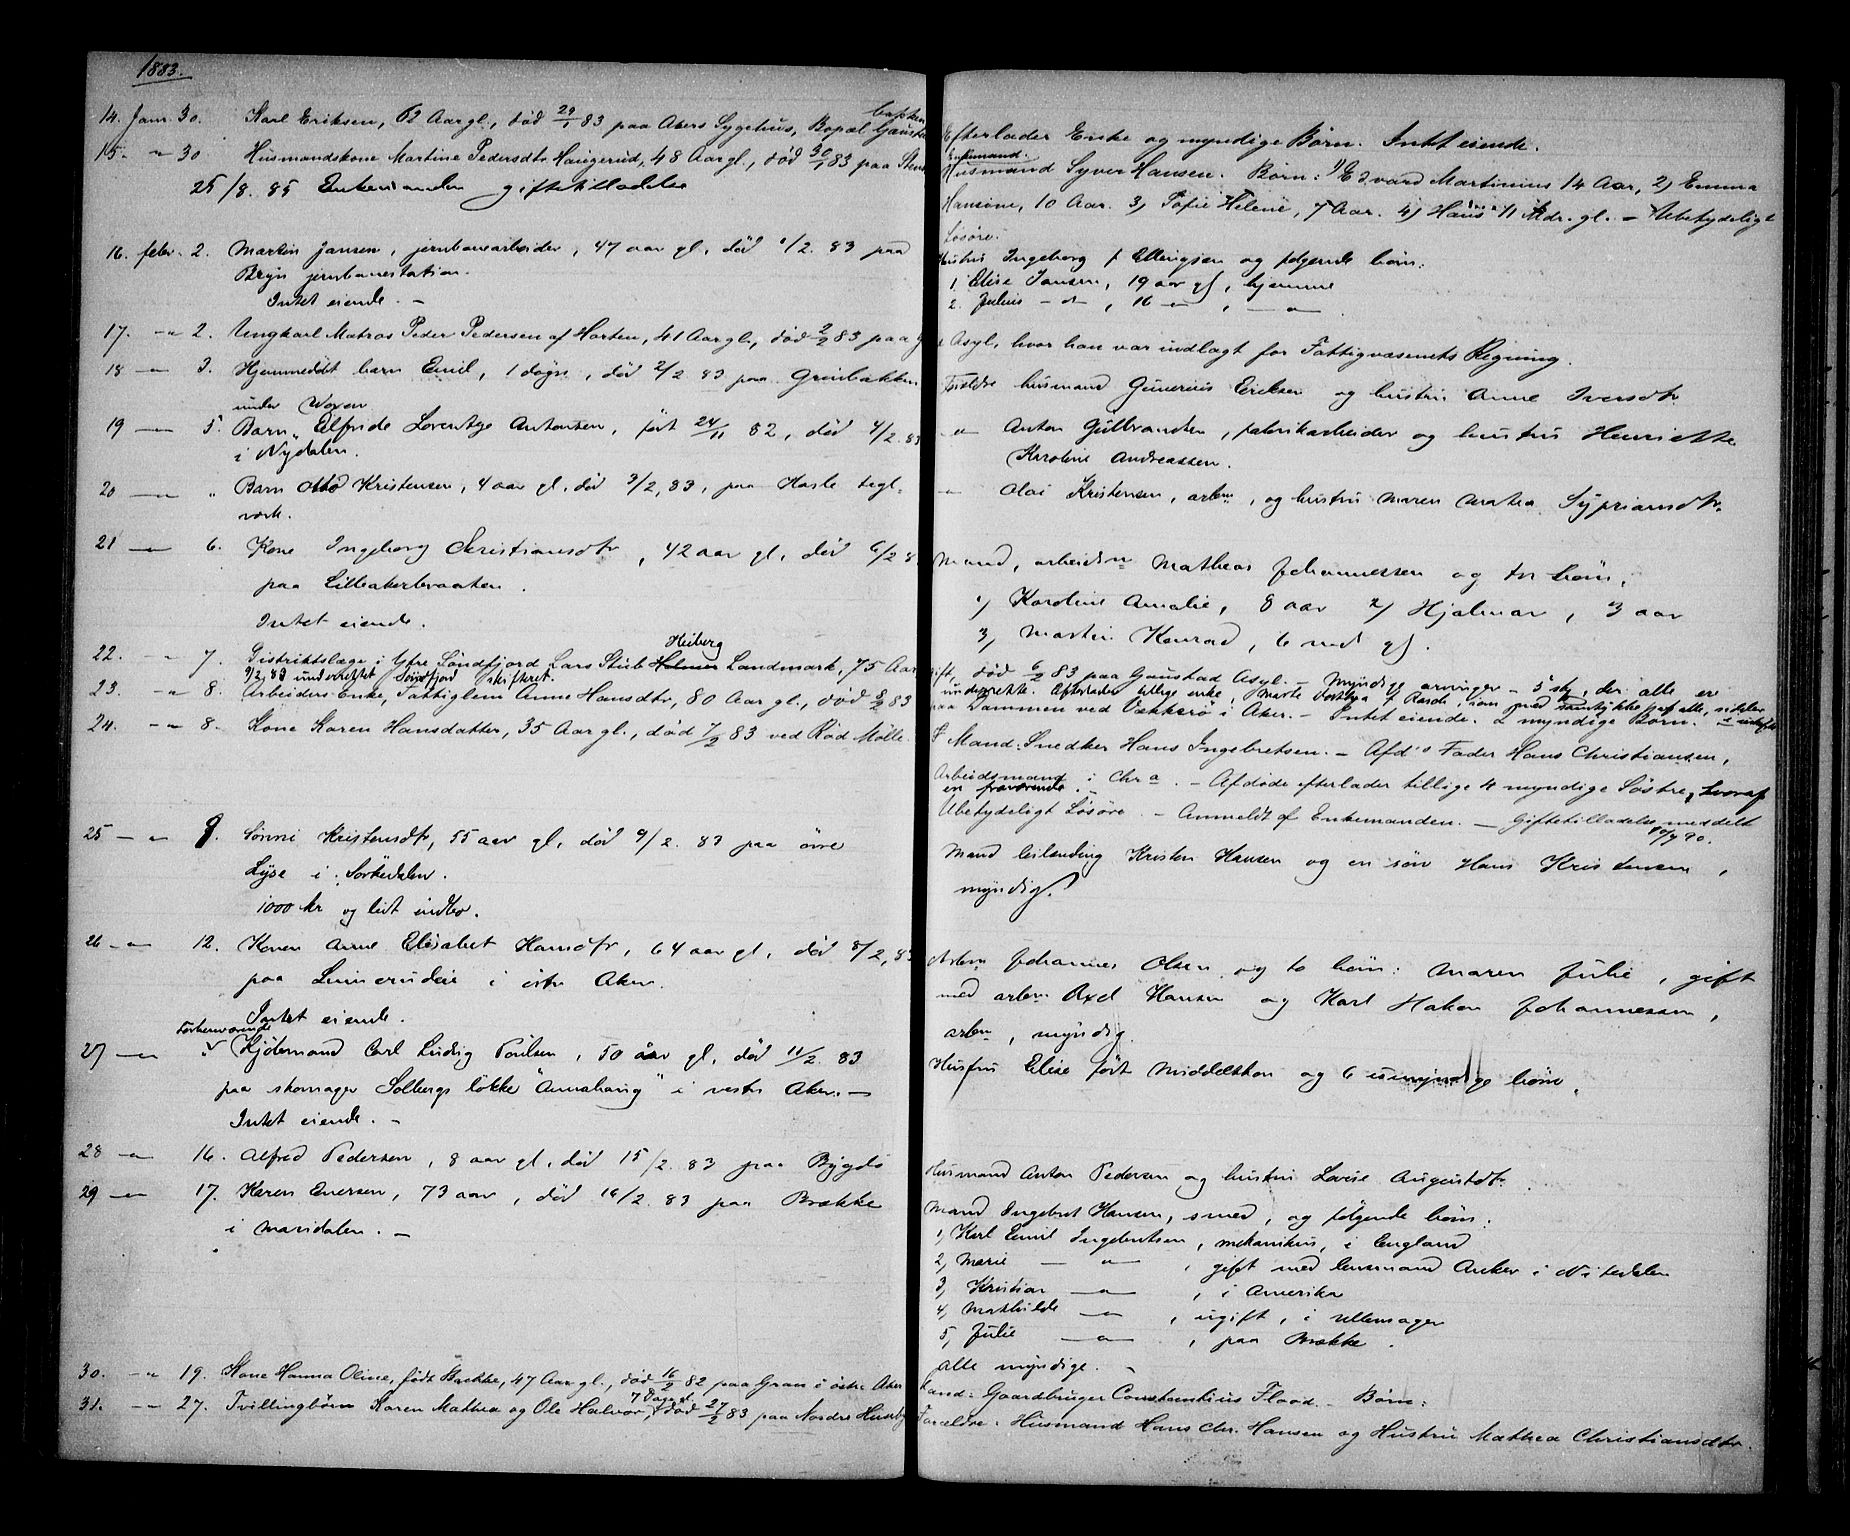 1883.
14. Janr. 30. Karl Eriksen, 62 Aar gl., død 29/1 83 paa Akers Sygehus, Bopæl Gausta
15. -"- 30 Husmandskone Martine Pedersdtr Haugerud, 48 Aar gl., død 30/1 83 paa
25/8. 85 Enkemanden giftetilladelse
16. febr. 2. Martin Jansen, jernbanearbeider, 47 aar gl, død 1/2. 83 paa
Bryn jernbanestation.
Intet eiende. -
17. -"- 2. Ungkarl Matros Peder Pedersen af Horten, 41 Aar gl., død 2/2 83 paa
18 -"- 3. Hjemmedøbt barn Emil, 1 døgn, død 2/2. 83 paa Grinibakken
under Voxen
19 -"- 5. Barn Elfride Lorentze Antonsen, født 24/11 82, død 4/2. 83
i Nydalen.
20 -"- " Barn Otto Kristensen, 4 aar gl, død 3/2, 83, paa Hasle tegl-
værk.
21 -"- 6. Kone Ingeborg Kristiansdtr, 42 aar gl, død 6/2 8
paa Lilleakerbraaten.
Intet eiende.
Heiberg
22. -"- 7. Distriktslæge i Ytre Søndfjord Lars Stub Landmark, 75 Aar
9/2 83 underrettet Søndfjord skifteret.
23. -"- 8. Arbeiders Enke, Fattiglem Anne Hansdtr, 80 Aar gl., død 8/2 83
24. -"- 8. Kone Karen Hansdatter, 35 Aar gl., død 7/2 83 ved Rød Mølle.
25 -"- 9. Sønni Kristensdtr, 55 aar gl, død 9/2. 83 paa øvre
Lyse i Sørkedalen.
1000 kr og lidt indbo.
26 -"- 12. Konen Anne Elisabet Hansdtr, 64 aar gl, død 8/2, 83
paa i østre Aker.
Intet eiende.
Forhenværende
27 -"- " Kjøbmand Carl Ludvig Poulsen, 50 aar gl, død 11/2. 83
paa skomager Solbergs løkke "Annahaug" i vestre Aker. -
Intet eiende. -
28 -"- 16. Alfred Pedersen, 8 aar gl, død 15/2. 83 paa Bygdø
29 -"- 17. Karen Enersen, 73 aar, død 16/2. 83 paa Brække
i Maridalen. -
30. -"- 19. Kone Hanna Oline, født Bække, 47 Aar gl., død 16/2 82 paa Gran i østre Aker
7 Dage gl.
31. -"- 27. Tvillingbørn Karen Mathea og Ole Halvor, død 27/2 83 paa Nordre Huseby
Efterlader Enke og myndige Børn. Intet eiende.
Enkemand.
Husmand Syver Hansen. Børn: 1) Edvard Martinius 14 Aar, 2) Emma
Hansine, 10 Aar. 3) Sofie Helene, 7 Aar. 4) Hans 11 Mdr. gl. - Ubetydeligt
Løsøre.
Hustru Ingeborg f Ellingsen og følgende børn:
1. Elise Jansen, 19 aar gl, hjemme
2. Julius -"-, 16 -"-, -"-
Asyl, hvor han var indlagt for Fattigvæsenets Regning.
Forældre husmand Gunerius Eriksen og hustru Anne Iversdtr
-"- Anton Gulbrandsen, fabrikarbeider og hustru Henriette
Karoline Andreassen.
-"- Olai Kristensen, arbm, og hustru Maren Mathea Sypriansdtr.
Mand, arbeidsm Mathias Johannessen og tre børn,
1) Karoline Amalie, 8 aar 2) Hjalmar, 3 aar
3) Martin Konrad, 6 md gl.
gift, død 6/2 83 paa Gaustad Asyl. - Myndige arvinger - 5 stk, der alle er
underrettet. Efterlader tillige enke, Marte f Rasch, som med samtykke af alle, sidder
i uskiftet
paa Dammen ved Vækkerø i Aker. - Intet eiende. 2 myndige Børn.
Mand: Snedker Hans Ingebretsen. - Afd's Fader Hans Christiansen,
Arbeidsmand i Chra. - Afdøde efterlader tillige 4 myndige Søstre, hvoraf
en fraværende.
Ubetydeligt Løsøre. - Anmeldt af Enkemanden. - Giftetilladelse meddelt
10/4 90.
Mand leilænding Kristen Hansen og en søn Hans Kristensen,
myndig.
Arbm Johannes Olsen og to børn: Maren Julie, gift
med arbm Axel Hansen og Karl Hakon Johannessen,
arbm, myndig.
Hustru Elise født Middelthon og 6 umyndige børn.
Husmand Anton Pedersen og hustru Lovise Augustdtr.
Mand Ingebret Hansen, smed, og følgende børn:
1, Karl Emil Ingebretsen, mekanikus, i England
2, Marie -"-, gift med lensmand Anker i Nitedalen
3, Kristian -"-, i Amerika
4, Mathilde -"-, ugift, i Ullensager
5, Julie -"-, paa Brække.
alle myndige. -
Mand: Gaardbruger Constantius Flood - Børn:
Forældre: Husmand Hans Chr. Hansen og Hustru Mathea Christiansdtr.